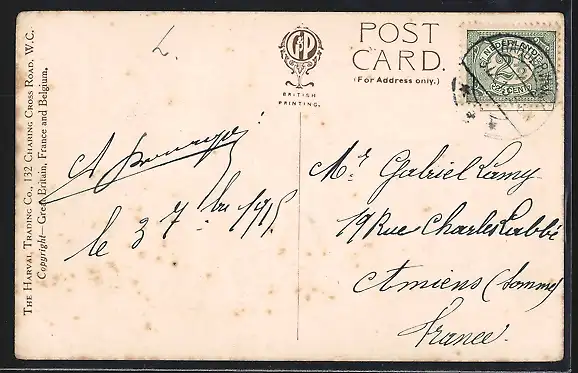 THE HARVAL TRADING CO., 132 CHARING CROSS ROAD, W.C.
Copyright—Great Britain, France and Belgium.
BRITISH
PRINTING.
POST
CARD.
(For Address only.)
NEDERLAND
2½
CENT
le 3 7 1915
Mr Gabriel Lamy
19 Rue Charles Labbé
Amiens (Somme)
France.